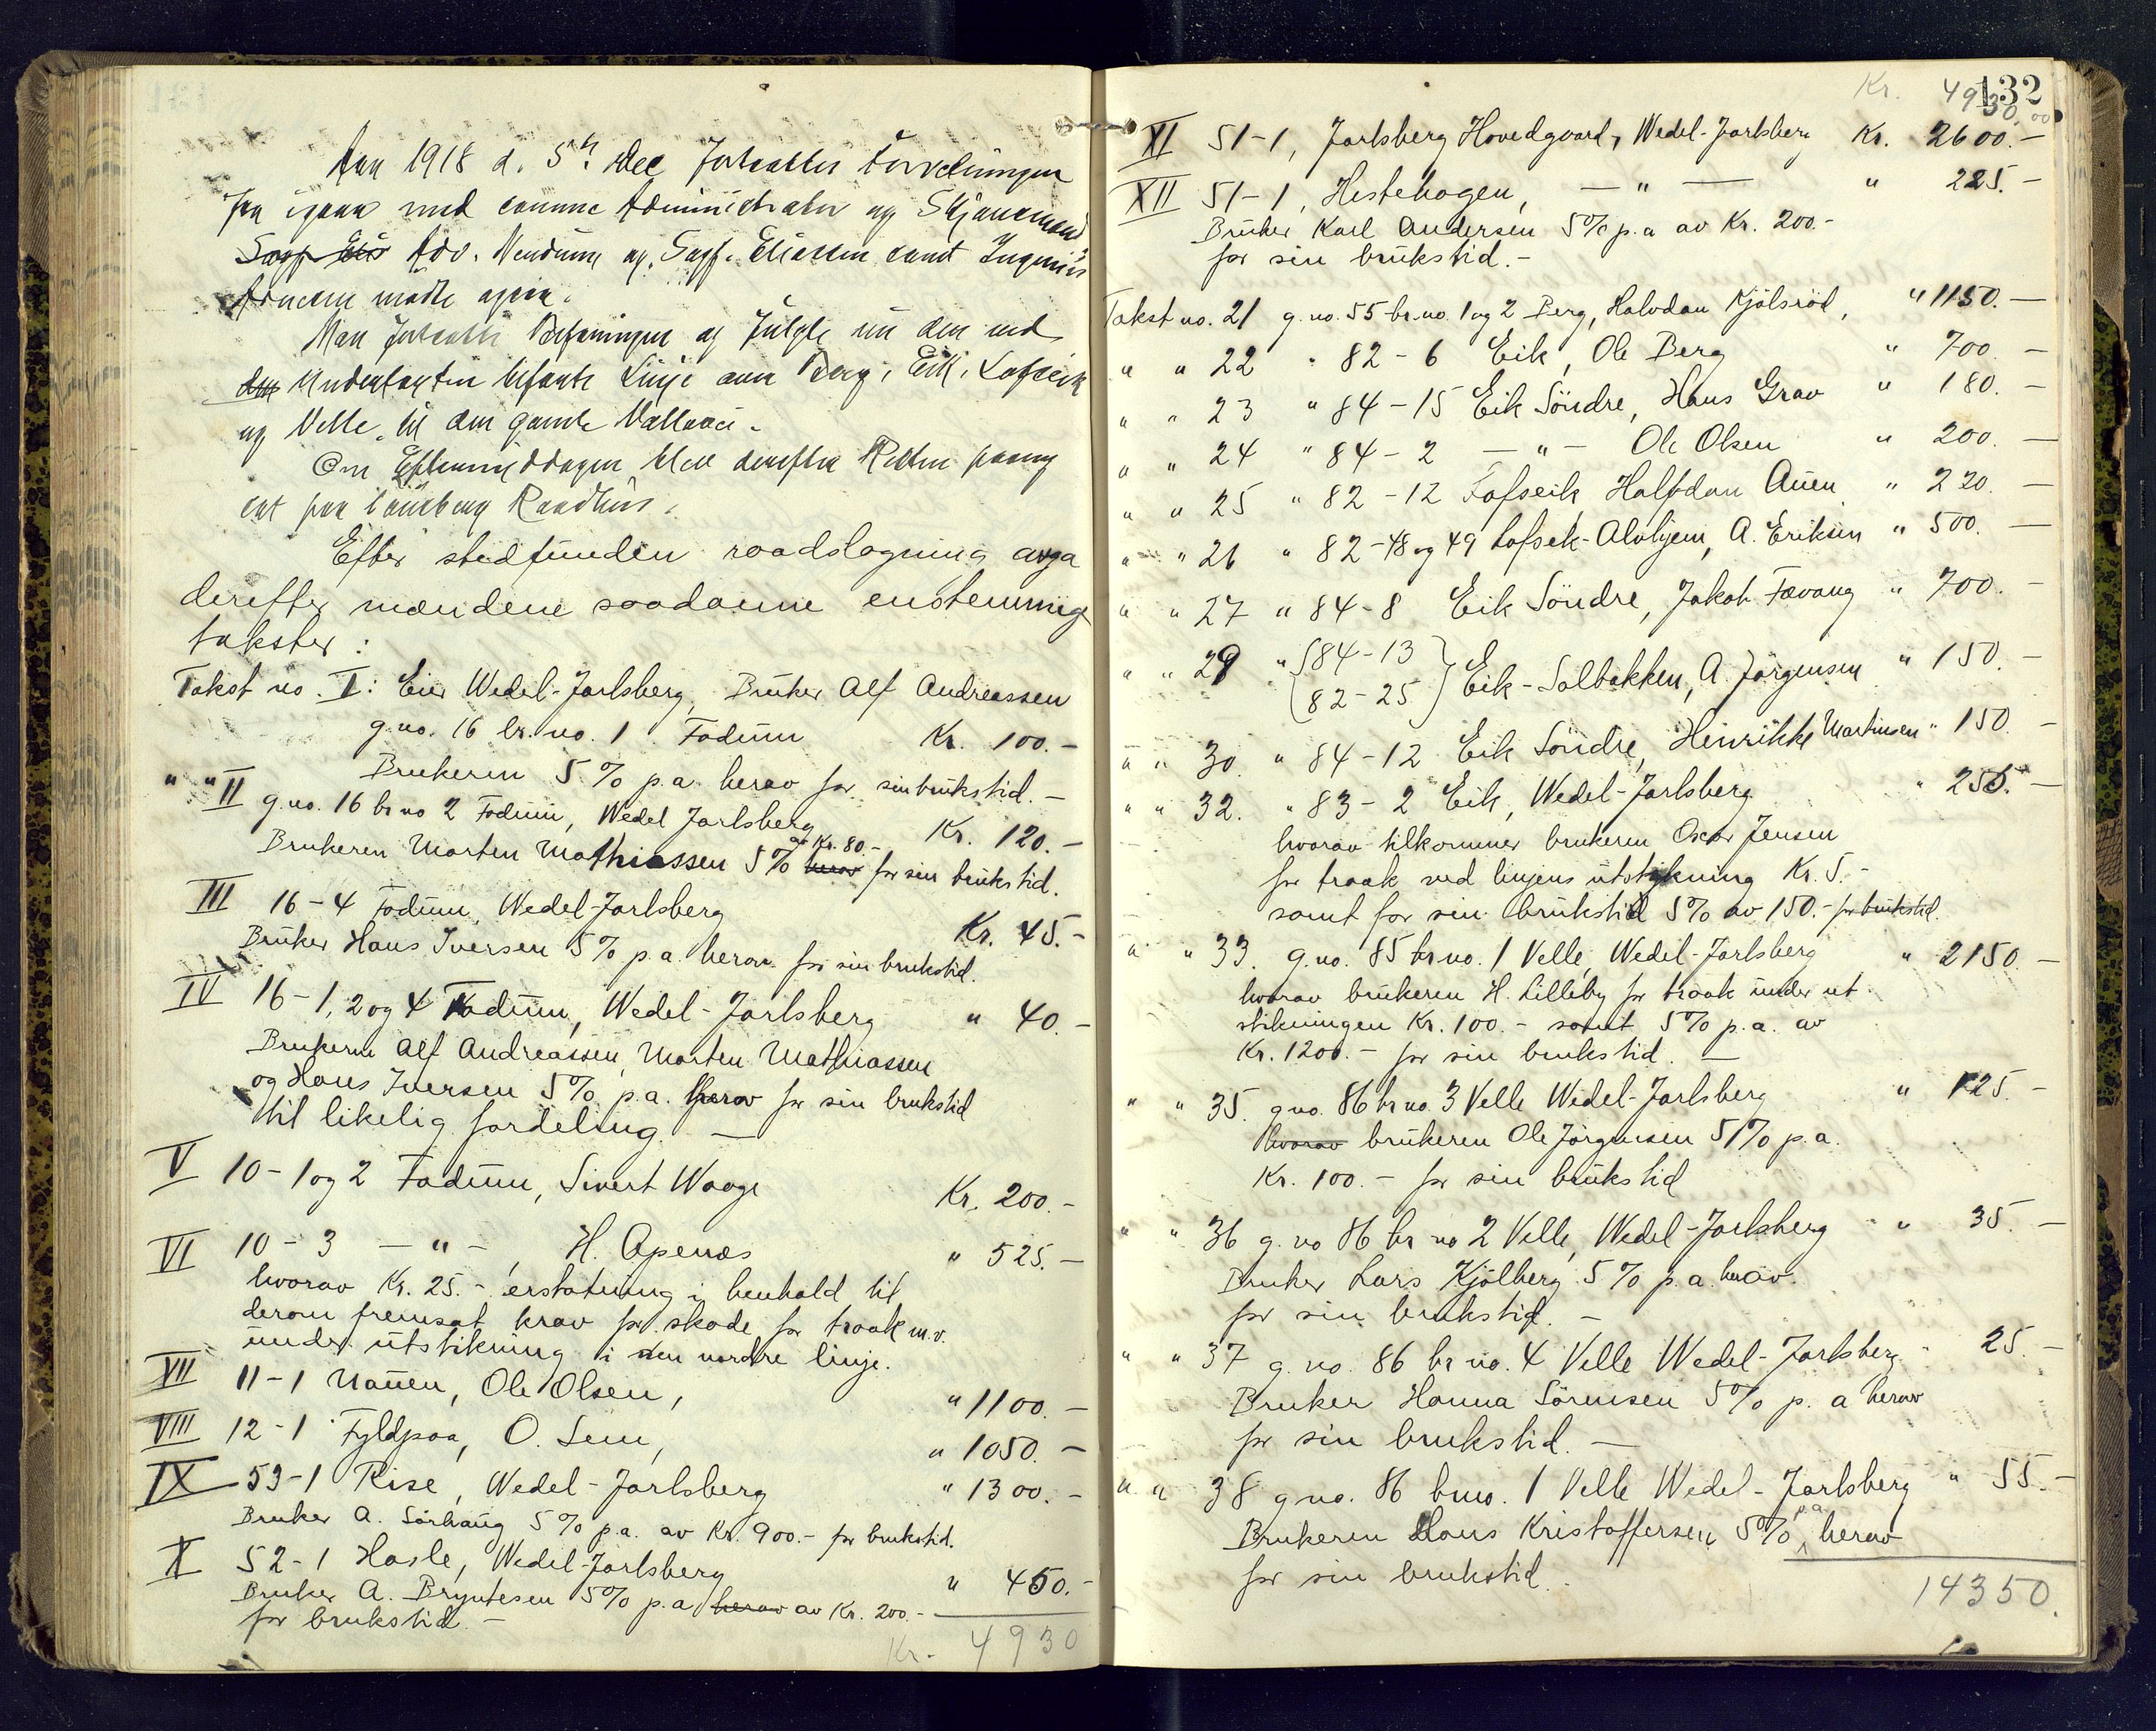 Aar 1918 d. 5te Dec fortsattes Forretningen
fra igaar med samme Administrator og Skjønsmænd
Adv. Wendung og Sagf. Eliassen samt Ingeniør
mødte ogsaa.
Man fortsatte Befaringen og fulgte nu den ved
den Undersøgte Linje over Berg, Eik, Lofseik
og Velle til den gamle
Om Eftermiddagen blev derefter Retten
sat paa Tønsberg Raadhus.
Efter stedfunden raadslagning avga
derefter mændene saadanne enstemmige
takster:
Takst no. I: Eier Wedel-Jarlsberg, Bruker Alf Andreassen
g.no. 16 br.no. 1 Fadum Kr. 100.-
Brukeren 5% p.a. herav for sin brukstid.-
" " II g.no. 16 br no 2 Fadum, Wedel Jarlsberg Kr. 120.-
Brukeren Marten Mathiassen 5% herav av Kr. 80.- for sin brukstid.
III 16-4 Fadum, Wedel-Jarlsberg Kr. 45.-
Bruker Hans Iversen 5% p.a. herav for sin brukstid.
IV 16-1, 2 og 4 Fadum, Wedel-Jarlsberg " 40.-
Brukerne Alf Andreassen, Marten Mathiassen
og Hans Iversen 5% p.a. herav for sin brukstid
til likelig fordeling. —
V 10-1 og 2 Fadum, Sivert Waage Kr. 200.-
VI 10-3 -"-, H. Apenæs " 525.-
hvorav Kr. 25.- erstatning i henhold til
derom fremsat krav for skade for traak m.v.
under utstikning i den nordre linje.
VII 11-1 Nauen, Ole Olsen, " 1100.-
VIII 12-1 Fyldpaa, O. Sem, " 1050.-
IX 53-1 Rise, Wedel-Jarlsberg " 1300.-
Bruker A. Sörhaug 5% p.a. av Kr. 900.- for brukstid.
X 52-1 Hasle, Wedel-Jarlsberg " 450.-
Bruker A. Bryntesen 5% p.a. herav av Kr. 200.-
for brukstid.-
Kr. 4930
132
Kr. 4930,00
XI 51-1, Jarlsberg Hovedgaard, Wedel-Jarlsberg Kr. 2600.-
XII 51-1, Hestehagen, — " — " 225.-
Bruker Karl Andersen 5% p.a av Kr. 200.-
for sin brukstid.-
Takst no. 21 g.no. 55 br.no. 1 og 2 Berg, Halvdan Kjölsröd, " 1150.—
" " 22 " 82-6 Eik, Ole Berg " 700.—
" " 23 " 84-15 Eik Söndre, Hans Grav " 180.—
" " 24 " 84-2 -"- Ole Olsen " 200.—
" " 25 " 82-12 Lofseik, Halfdan Auen " 220.—
" " 26 " 82-48 og 49 Lofsek-Alvhjem, A. Eriksen " 500.—
" " 27 " 84-8 Eik Söndre, Jakob Fævang " 700.-
" " 29 " 84-13
82-25 Eik-Solbakken, A. Jörgensen " 150.-
" " 30. " 84-12 Eik Söndre, Henrikke Martinsen " 150.-
" " 32. " 83-2 Eik, Wedel-Jarlsberg " 255.—
hvorav tilkommer brukeren Oscar Jensen
for traak ved linjens utstikning Kr. 5.-
samt for sin brukstid 5% av 150.- for brukstid.
" " 33. g.no. 85 br.no. 1 Velle, Wedel-Jarlsberg " 2150.—
hvorav brukeren H. Lilleby for traak under ut-
stikningen Kr. 100.- samt 5% p.a. av
Kr. 1200.- for sin brukstid. —
" " 35. g.no. 86 br.no. 3 Velle Wedel-Jarlsberg " 125.-
hvorav brukeren Ole Jörgensen 5% p.a.
Kr. 100.- for sin brukstid
" " 36 g.no 86 br no 2 Velle, Wedel-Jarlsberg " 35.—
Bruker Lars Kjölberg 5% p.a. herav.
for sin brukstid. -
" " 37 g.no. 86 br no. 4 Velle Wedel-Jarlsberg " 25.—
Bruker Hanna Sörensen 5% p.a herav
for sin brukstid. —
" " 38 g.no. 86 br.no. 1 Velle Wedel-Jarlsberg " 55.-
Brukeren Hans Kristoffersen 5% p.a. herav
for sin brukstid.
14350.